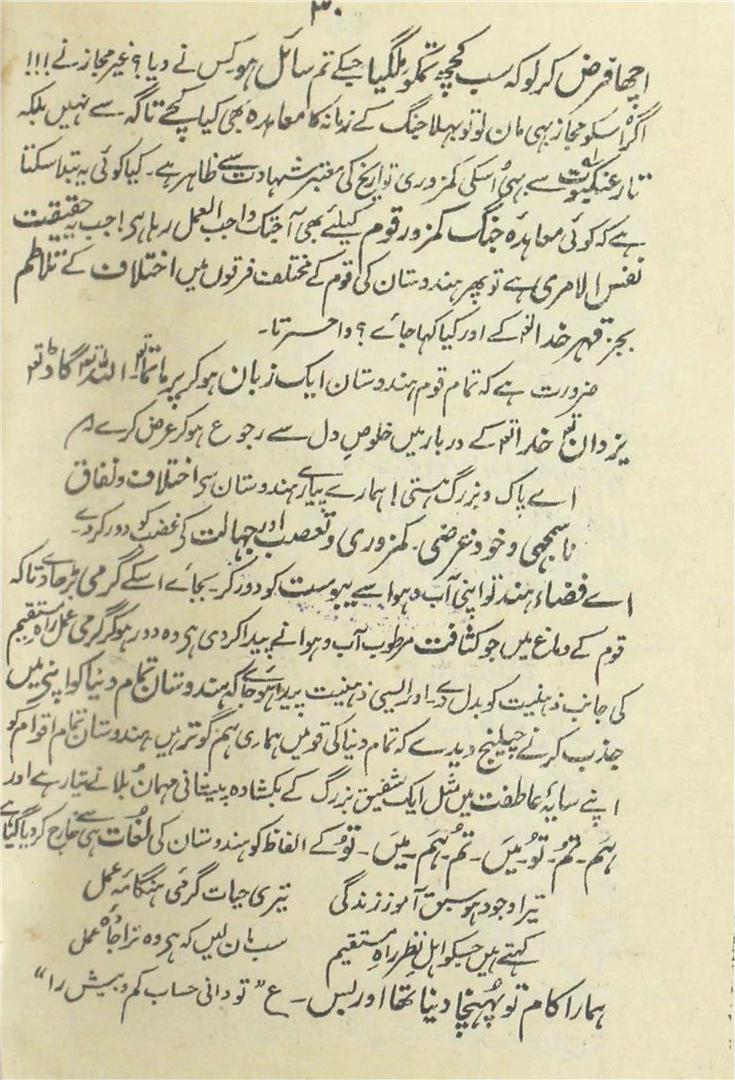 ۳۰
اچھا فرض کر لو کہ سب کچھ تمکو ملگیا جسکے تم سائل ہو کس نے دیا؟ غیر مجاز نے!!!
اگر اسکو مجاز بھی مان لو تو بھلا جنگ کے زمانہ کا معاہدہ بھی کیا کچے تاگہ سے نہیں بلکہ
تار عنکبوت سے بھی اُسکی کمزوری تواریخ کی معتبر شہادت سے ظاہر ہے۔ کیا کوئی یہ بتلا سکتا
ہے کہ کوئی معاہدۂ جنگ کمزور قوم کیلئے بھی آجتک واجب العمل رہا ہی! جب یہ حقیقت
نفس الامری ہے تو پھر ہندوستان کی قوم کے مختلف فرقوں میں اختلاف کے تلاطم
بجز قہر خدا کے اور کیا کہا جائے؟ واحسرتا۔
ضرورت ہے کہ تمام قوم ہندوستان ایک زبان ہو کر پرماتما۔ اللہ گاڈ
یزدان خدا کے دربار میں خلوص دل سے رجوع ہو کر عرض کرے
اے پاک و بزرگ ہستی! ہمارے پیارے ہندوستان سی اختلاف و نفاق
ناسمجھی و خود غرضی۔ کمزوری و تعصب اور جہالت کی غضب کو دور کر دے۔
اے فضاء ہند تو اپنی آب و ہوا سے یبوست کو دور کر۔ بجائے اسکے گرمی بڑھا دے تاکہ
قوم کے دماغ میں جو کثافت مرطوب آب و ہوا نے پیدا کر دی ہی وہ دور ہو کر گرمی عمل راہ مستقیم
کی جانب ذہنیت کو بدل دے۔ اور ایسی ذہنیت پیدا ہو جائے کہ ہندوستان تمام دنیا کو اپنی میں
جذب کرنے چیلنج دیدے کہ تمام دنیا کی قومیں ہماری ہم گوتر ہیں ہندوستان تمام اقوام کو
اپنے سایۂ عاطفت میں مثل ایک شفیق بزرگ کے بکشادہ پیشانی مہمان بلانے تیار ہے اور
ہَم۔ تُم۔ تُو۔ مَیں۔ تُم۔ ہَم۔ مَیں۔ تُو کے الفاظ کو ہندوستان کی لغات ہی سے خارج کر دیا گیا ہے
تیرا وجود ہو سبق آموز زندگی تیری حیات گرمیٔ ہنگامۂ عمل
کہتے ہیں جسکو اہل نظر راہ مستقیم سب مان لیں کہ ہی وہ ترا جادۂ عمل
ہمارا کام تو پہنچا دینا تھا اور بس۔ ع "تو دانی حساب کم و بیش را"